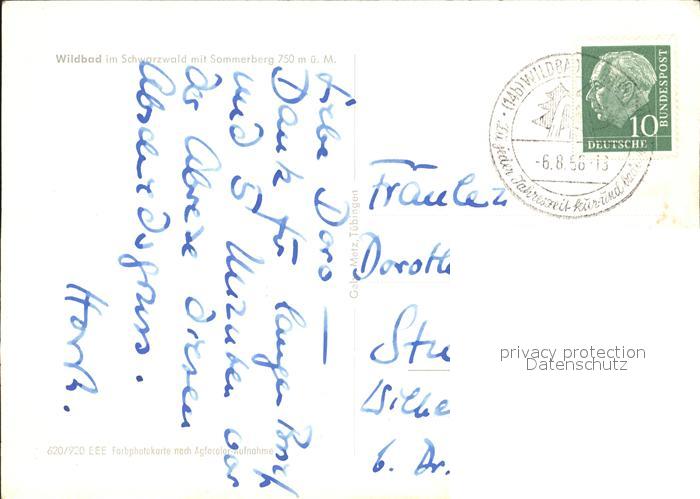 Wildbad im Schwarzwald mit Sommerberg 750 m ü. M.
Liebe Doro —
Dank für langen Brief
und 5 Minuten vor
der Abreise diesen
Abschiedsgruss.
Horst.
620/920 EEE Farbphotokarte nach Agfacolor-Aufnahme
Gebr. Metz, Tübingen
(14b) WILDBAD
-6.8.56-13
Zu jeder Jahreszeit Kur und
10
DEUTSCHE
BUNDESPOST
Fräulein
Doroth
Stu
Wilhe
b. Dr.
privacy protection
Datenschutz